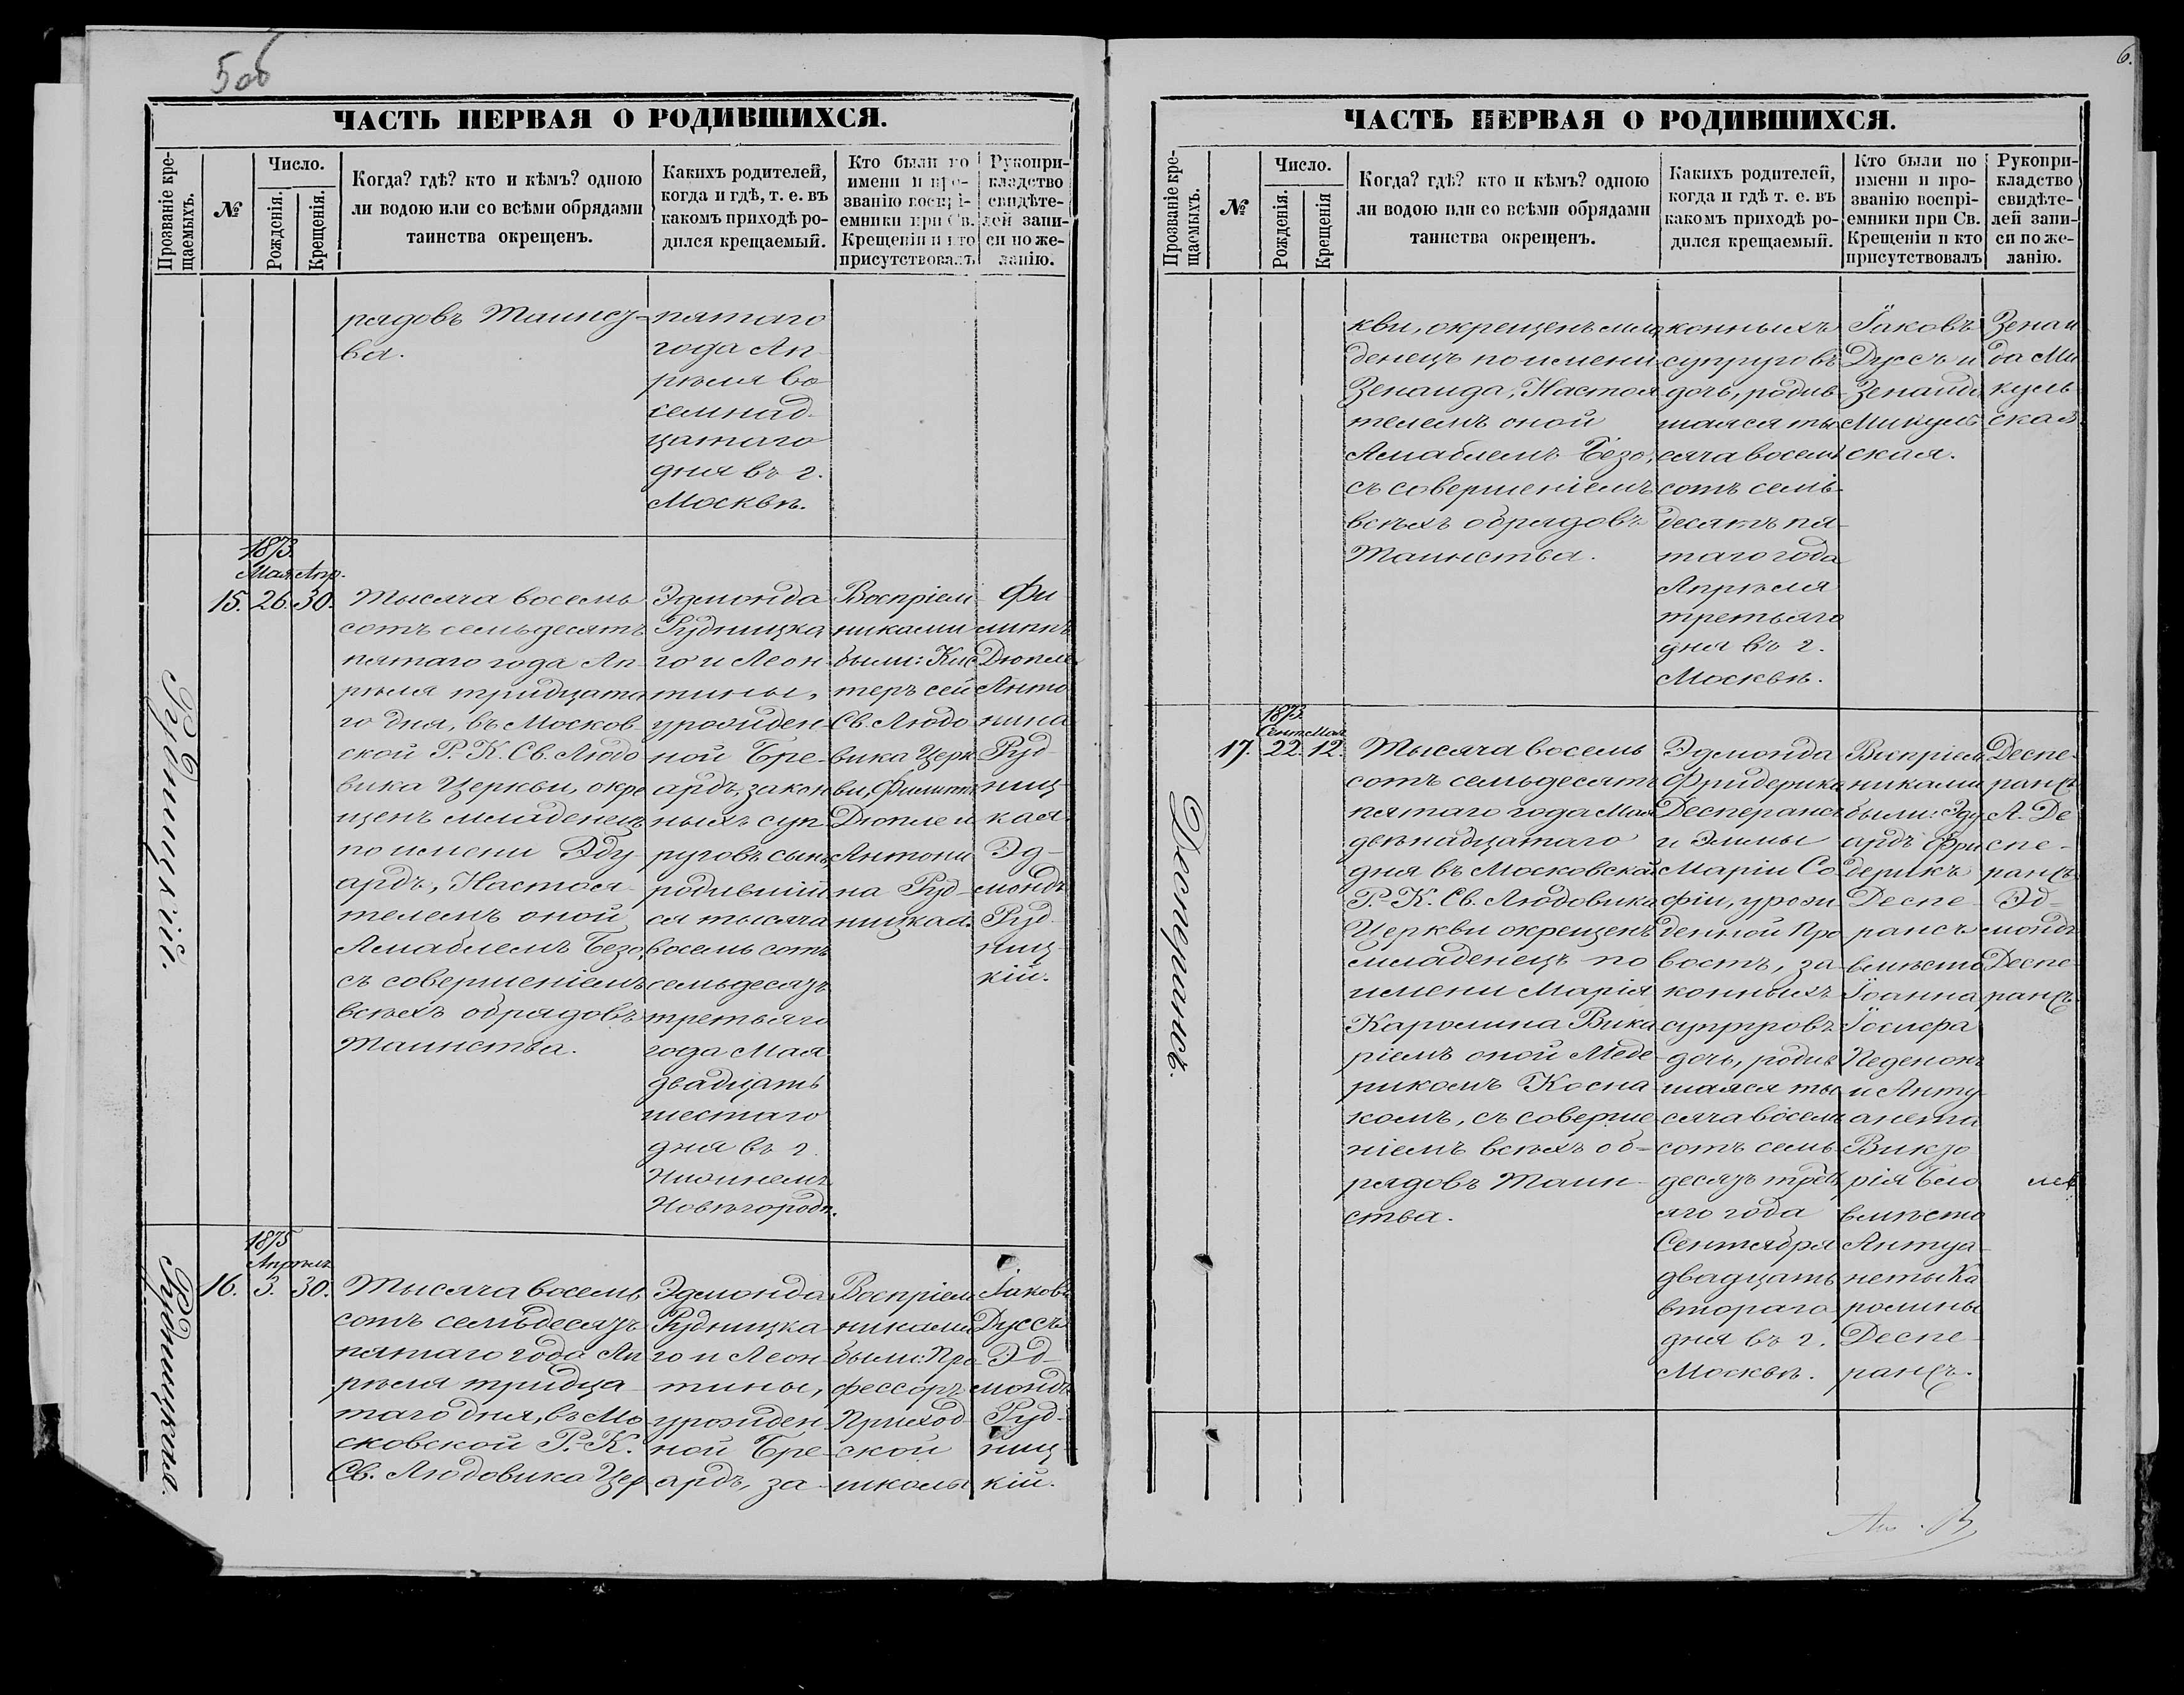 5об
ЧАСТЬ ПЕРВАЯ О РОДИВШИХСЯ.
Прозваніе кре-
щаемыхъ.
№
Число.
Рожденія.
Крещенія.
Когда? гдѣ? кто и кѣмъ? одною
ли водою или со всѣми обрядами
таинства окрещенъ.
Какихъ родителей,
когда и гдѣ, т. е. въ
какомъ приходѣ ро-
дился крещаемый.
Кто были по
имени и про-
званію воспрі-
емники при Св.
Крещеніи и кто
присутствовалъ
Рукопри-
кладство
свидѣте-
лей запи-
си по же-
ланію.
рядовъ Таинст-
ва.
пятаго
года Ап-
рѣля во
семнад-
цатаго
дня въ г.
Москвѣ.
Рудницкій.
15.
1873.
Мая Апр.
26. 30.
Тысяча восемь
сотъ семьдесятъ
пятаго года Ап-
рѣля тридцата
го дня, въ Москов-
ской Р. К. Св. Людо
вика Церкви, окре
щенъ младенецъ
по имени Эду-
ардъ, Настоя-
телемъ оной
Амаблемъ Безо,
съ совершеніемъ
всѣхъ обрядовъ
Таинства.
Эдмонда
Рудницка
го и Леон-
тины,
урожден-
ной Бре-
ардъ, закон
ныхъ суп-
руговъ сынъ
родившій
ся тысяча
восемь сотъ
семьдесятъ
третьяго
года Мая
двадцать
шестаго
дня въ г.
Нижнемъ
Новѣгородѣ.
Воспріем-
никами
были: Кис
теръ сей
Св. Людо
вика Церк
ви, Филиппъ
Дюпле и
Антони
на Руд-
ницкая.
Фи
липпъ
Дюпле
Анто
нина
Руд-
ниц-
кая.
Эд-
мондъ
Руд-
ниц
кій.
Рудницкая.
16.
1875
Апрѣль
3. 30.
Тысяча восемь
сотъ семьдесятъ
пятаго года Ап
рѣля тридца-
таго дня, въ Мо
сковской Р.-К.
Св. Людовика Цер
Эдмонда
Рудницка-
го и Леон-
тины,
урожден-
ной Бре-
ардъ, за-
Воспріем
никами
были: Про
фессоръ
Приход-
ской
школы
Іаковъ
Дуссъ
Эд-
мондъ
Руд-
ниц-
кій.
6.
ЧАСТЬ ПЕРВАЯ О РОДИВШИХСЯ.
Прозваніе кре-
щаемыхъ.
№
Число.
Рожденія.
Крещенія
Когда? гдѣ? кто и кѣмъ? одною
ли водою или со всѣми обрядами
таинства окрещенъ.
Какихъ родителей,
когда и гдѣ т. е. въ
какомъ приходѣ ро-
дился крещаемый.
Кто были по
имени и про-
званію воспрі-
емники при Св.
Крещеніи и кто
присутствовалъ
Рукопри-
кладство
свидѣте-
лей запи-
си по же-
ланію.
кви, окрещенъ мла
денецъ по имени
Зенаида, Настоя
телемъ оной
Амаблемъ Безо,
съ совершеніемъ
всѣхъ обрядовъ
Таинства.
конныхъ
супруговъ
дочь, родив-
шаяся ты
сяча восемь
сотъ семь-
десятъ пя-
таго года
Апрѣля
третьяго
дня въ г.
Москвѣ.
Іаковъ
Дуссъ и
Зенаида
Микуль
ская.
Зенаи
да Ми
куль
ская.
Десперансъ.
17.
1873.
Сент. Мая
22. 12.
Тысяча восемь
сотъ семьдесятъ
пятаго года Мая
двѣнадцатаго
дня въ Московской
Р. К. Св. Людовика
Церкви окрещенъ
младенецъ по
имени Марія
Каролина Вика
ріемъ оной Меде
рикомъ Косна
комъ, съ соверше
ніемъ всѣхъ об-
рядовъ Таин-
ства.
Эдмонда
Фридерика
Десперансъ
и Эммы
Маріи Со
фіи, урож
денной Про
востъ, за-
конныхъ
супруговъ
дочь, родив
шаяся ты
сяча восемь
сотъ семь
десятъ треть
яго года
Сентября
двадцать
втораго
дня въ г.
Москвѣ.
Воспріем
никами
были: Эду
ардъ Фри
дерикъ
Деспе-
рансъ
вмѣсто
Іоанна
Іосифа
и Анту
анета
Викто
рія
вмѣсто
Антуа-
неты Ка
ролины
Деспе-
рансъ.
Деспе-
рансъ
А. Де
спе-
рансъ
Эд-
мондъ
Деспе-
рансъ